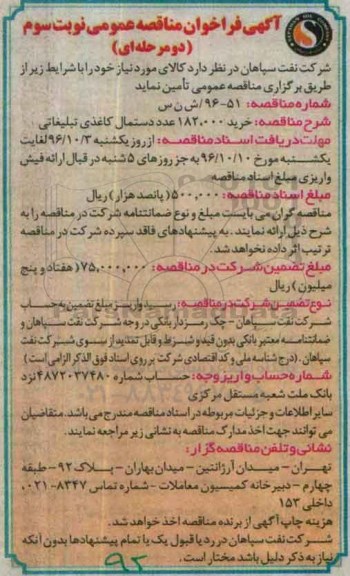 آگهی فراخوان مناقصه عمومی نوبت سوم
(دو مرحله ای)
شرکت نفت سپاهان در نظر دارد کالای مورد نیاز خود را با شرایط زیر از
طریق برگزاری مناقصه عمومی تأمین نماید
شماره مناقصه: ۵۱-۹۶/ش ن س
شرح مناقصه: خرید ۱۸۲,۰۰۰ عدد دستمال کاغذی تبلیغاتی
مهلت دریافت اسناد مناقصه: از روز یکشنبه ۹۶/۱۰/۳ لغایت
یکشنبه مورخ ۹۶/۱۰/۱۰ به جز روزهای ۵ شنبه در قبال ارائه فیش
واریزی مبلغ اسناد مناقصه
مبلغ اسناد مناقصه: ۵۰۰,۰۰۰ (پانصد هزار) ریال
مناقصه گران می بایست مبلغ و نوع ضمانتنامه شرکت در مناقصه را به
شرح ذیل ارائه نمایند. به پیشنهادهای فاقد سپرده شرکت در مناقصه
ترتیب اثر داده نخواهد شد.
مبلغ تضمین شرکت در مناقصه: ۷۵,۰۰۰,۰۰۰ (هفتاد و پنج
میلیون) ریال
نوع تضمین شرکت در مناقصه: رسید واریز مبلغ تضمین به حساب
شرکت نفت سپاهان - چک رمزدار بانکی در وجه شرکت نفت سپاهان و
ضمانتنامه معتبر بانکی بدون قید و شرط و قابل تمدید از سوی شرکت نفت
سپاهان. (درج شناسه ملی و کد اقتصادی شرکت بر روی اسناد فوق الذکر الزامی است)
شماره حساب واریز وجه: حساب شماره ۴۸۷۲۰۳۷۴۸۰ نزد
بانک ملت شعبه مستقل مرکزی
سایر اطلاعات و جزئیات مربوطه در اسناد مناقصه مندرج می باشد. متقاضیان
می توانند جهت اخذ مدارک مناقصه به نشانی زیر مراجعه نمایند.
نشانی و تلفن مناقصه گزار:
تهران - میدان آرژانتین - میدان بهاران - پلاک ۹۲ - طبقه
چهارم - دبیرخانه کمیسیون معاملات - شماره تماس ۸۳۴۷-۰۲۱
داخلی ۱۵۳
هزینه چاپ آگهی از برنده مناقصه اخذ خواهد شد.
شرکت نفت سپاهان در رد یا قبول یک یا تمام پیشنهادها بدون آنکه
نیاز به ذکر دلیل باشد مختار است.
۹۲